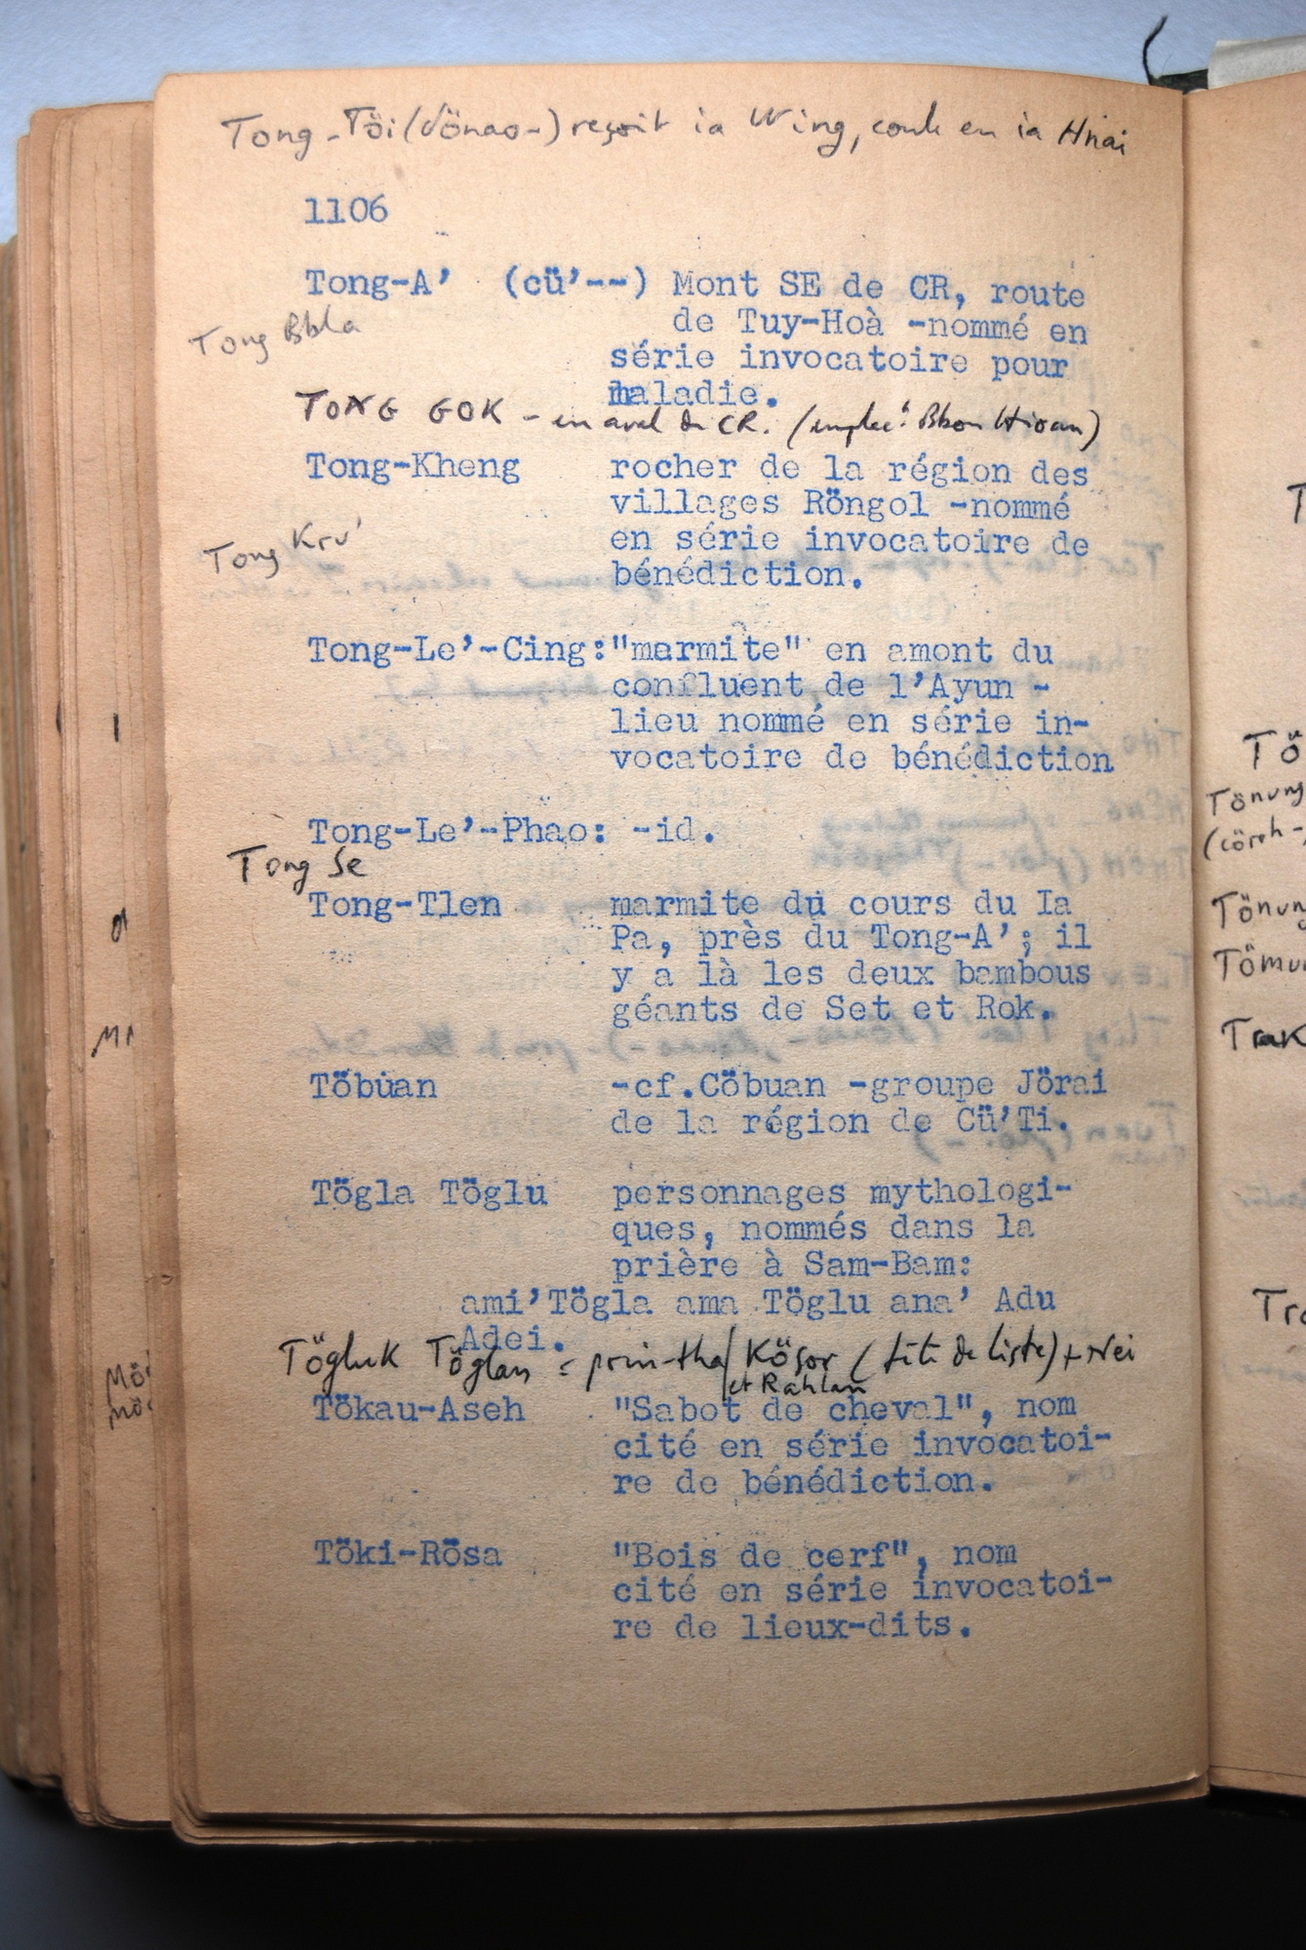 Tong-Töi (dönao-) reçoit ia Wing, coule en ia Hnai
1106
Tong-A' (cü'--) Mont SE de CR, route
de Tuy-Hoà -nommé en
série invocatoire pour
maladie.
Tong Bbla
TONG GOK - en aval de CR. (emplact Bbon Hioan)
Tong-Kheng rocher de la région des
villages Röngol -nommé
en série invocatoire de
bénédiction.
Tong Kru'
Tong-Le'-Cing: "marmite" en amont du
confluent de l'Ayun -
lieu nommé en série in-
vocatoire de bénédiction
Tong-Le'-Phao: -id.
Tong Se
Tong-Tlen marmite du cours du Ia
Pa, près du Tong-A'; il
y a là les deux bambous
géants de Set et Rok.
Töbuan -cf.Cöbuan -groupe Jörai
de la région de Cü'Ti.
Tögla Töglu personnages mythologi-
ques, nommés dans la
prière à Sam-Bam:
ami'Tögla ama Töglu ana' Adu
Adei.
Tögluk Töglan = prin-tha Kösor (tête de liste) + Nei
et Rahlan
Tökau-Aseh "Sabot de cheval", nom
cité en série invocatoi-
re de bénédiction.
Töki-Rösa "Bois de cerf", nom
cité en série invocatoi-
re de lieux-dits.
Tönung
Trak